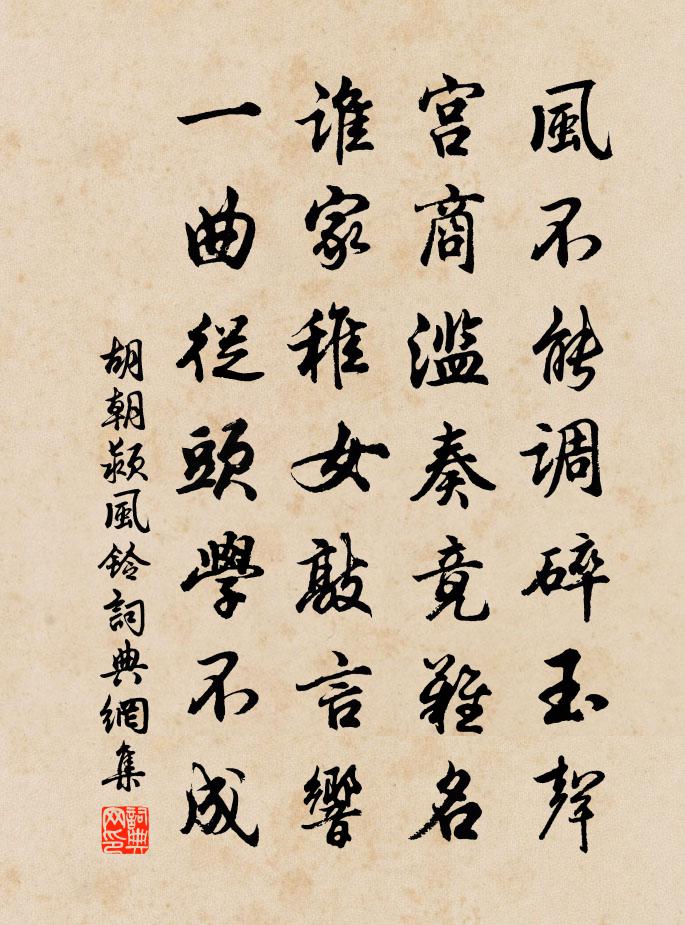 風不能調碎玉聲
宮商濫奏竟難名
誰家稚女敲言響
一曲從頭學不成
胡朝颖風鈴詞典網集
詞典
网印